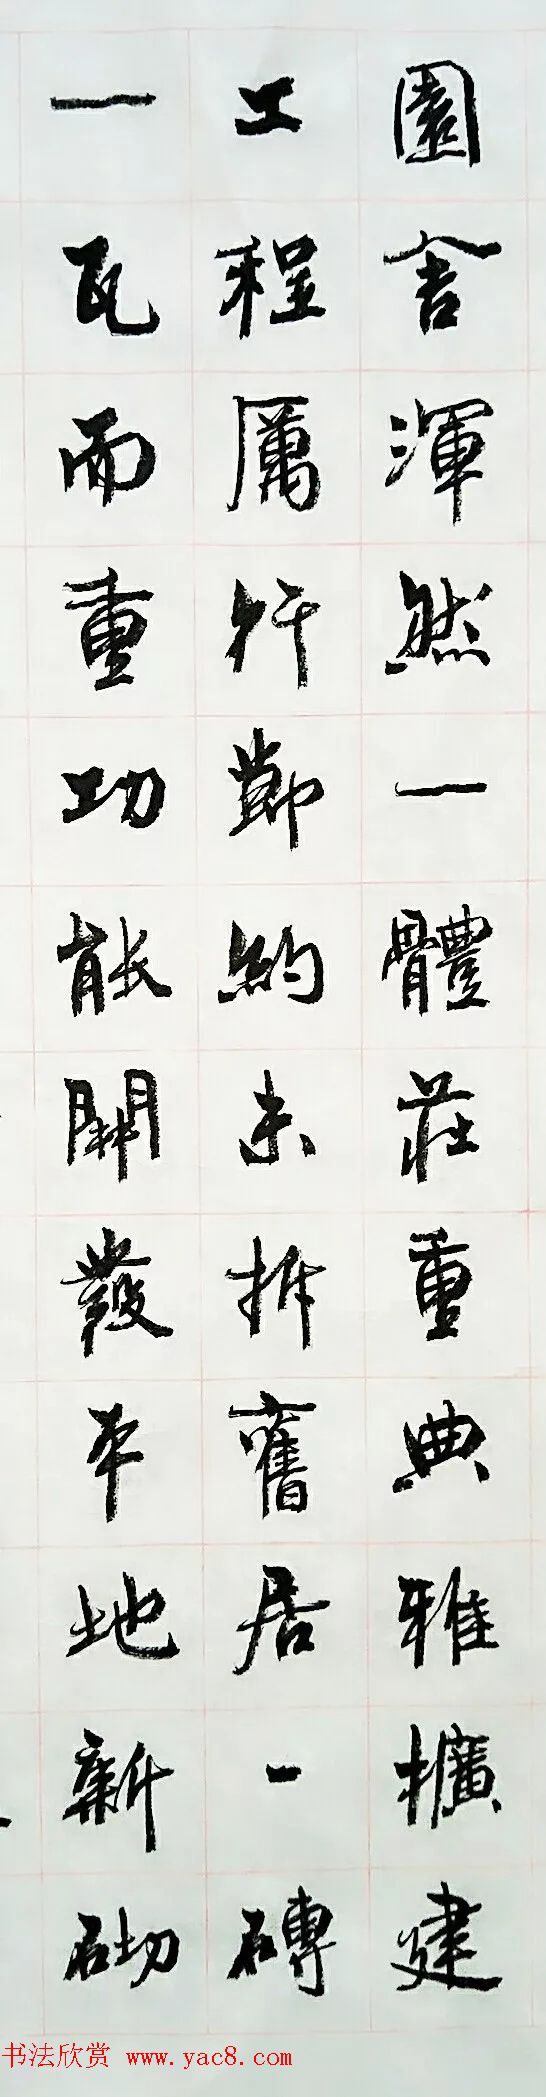 園舍渾然一體莊重典雅擴建
工程厲行節約未拆舊居一磚
一瓦而重功能開發平地新砌
书法欣赏 www.yac8.com